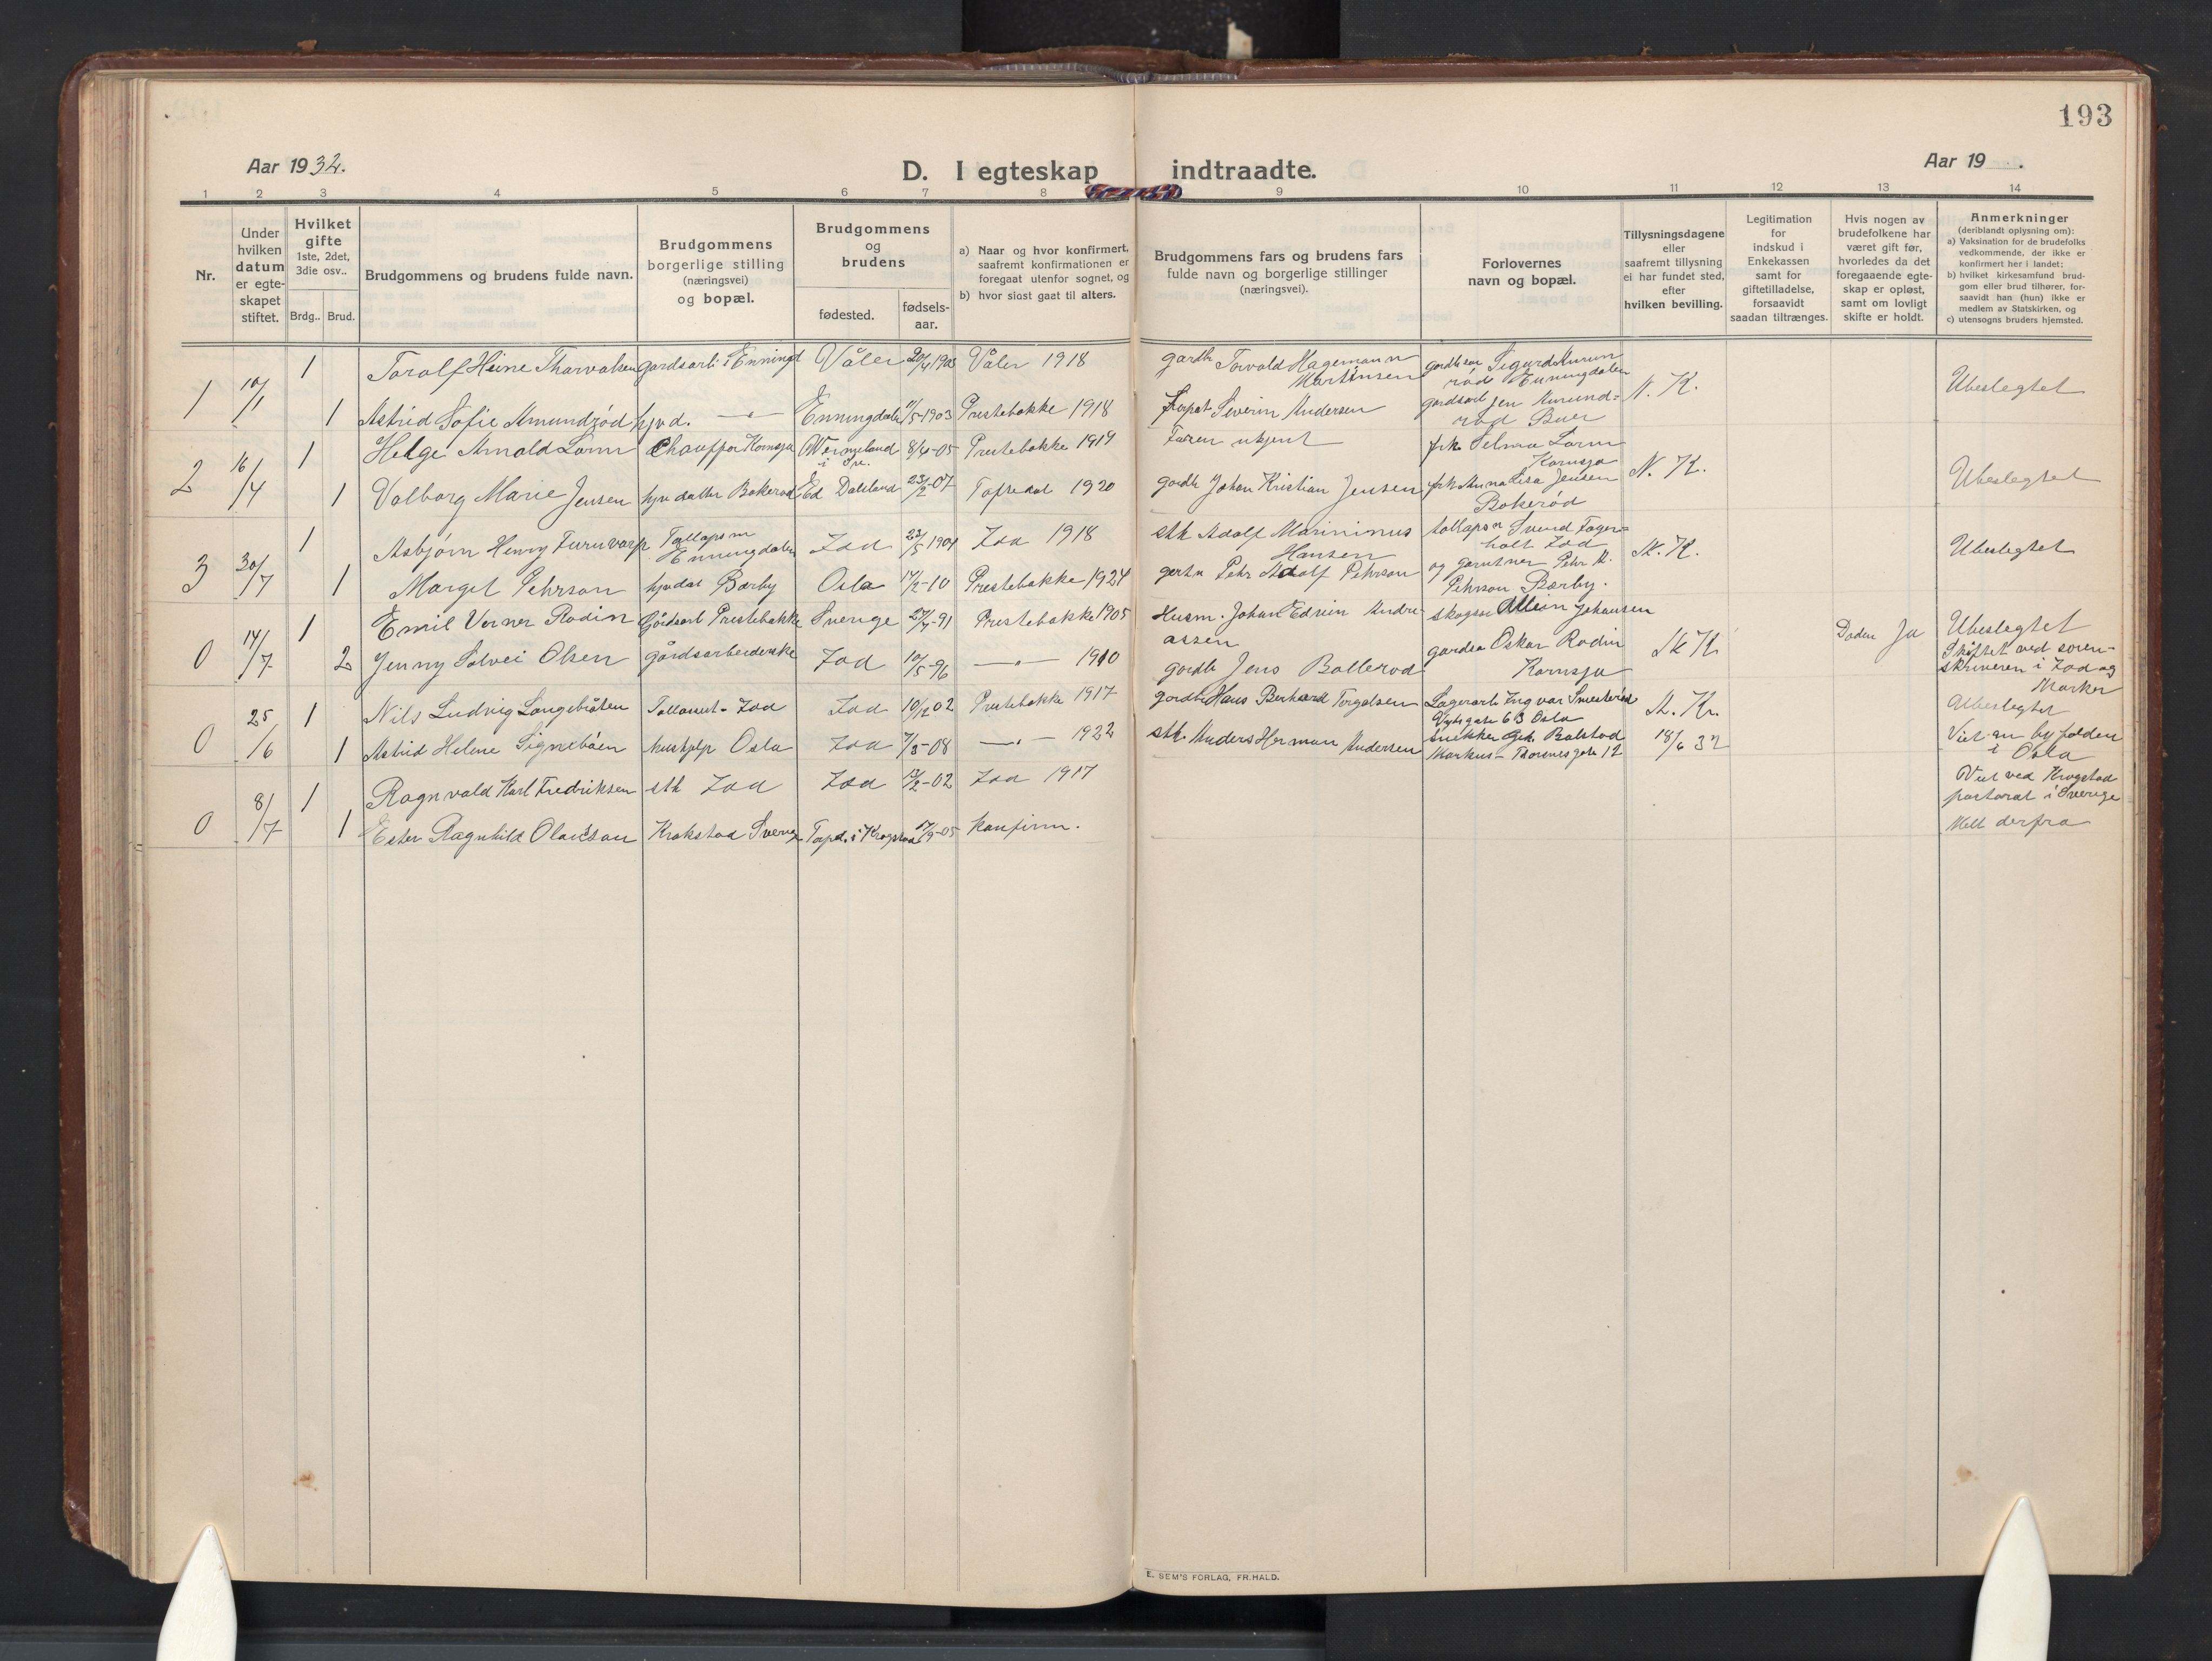 193
Aar 1932.
D. I egteskap indtraadte.
Aar 19 .
1 2 3 4 5 6 7 8 9 10 11 12 13 14
Nr.
Under
hvilken
datum
er egte-
skapet
stiftet.
Hvilket
gifte
1ste, 2det,
3die osv..
Brdg.. Brud.
Brudgommens og brudens fulde navn.
Brudgommens
borgerlige stilling
(næringsvei)
og bopæl.
Brudgommens
og
brudens
fødested.
fødsels-
aar.
a) Naar og hvor konfirmert,
saafremt konfirmationen er
foregaat utenfor sognet, og
b) hvor sidst gaat til alters.
Brudgommens fars og brudens fars
fulde navn og borgerlige stillinger
(næringsvei).
Forlovernes
navn og bopæl.
Tillysningsdagene
eller
saafremt tillysning
ei har fundet sted,
efter
hvilken bevilling.
Legitimation
for
indskud i
Enkekassen
samt for
giftetilladelse,
forsaavidt
saadan tiltrænges.
Hvis nogen av
brudefolkene har
været gift før,
hvorledes da det
foregaaende egte-
skap er opløst,
samt om lovligt
skifte er holdt.
Anmerkninger
(deriblandt oplysning om):
a) Vaksination for de brudefolks
vedkommende, der ikke er
konfirmert her i landet;
b) hvilket kirkesamfund brud-
gom eller brud tilhører, for-
saavidt han (hun) ikke er
medlem av Statskirken, og
c) utensogns bruders hjemsted.
1 10/1 1 Torolf Heine Thorvalsen gårdsarb i Enningd Våler 20/4 1903 Våler 1918 gardbr Torvald Hagemann
Martinsen
Sigurd Amun
rød Enningdalen
N. K. Ubeslegtet
1 Astrid Sofie Amundrød hjvd. — " — Enningdalen 11/5-1903 Prestebakke 1918 Severin Andersen gardsarb Jen Amund=
rød Buer
2 16/4 1 Helge Arnold Lorin Chauffør Kornsjø Wermeland
i Sv. 8/4-05 Prestebakke 1919 Faren ukjent frk Selma Lorin
Kornsjø
N. K. Ubeslegtet
1 Valborg Marie Jensen hjv datter Bokerød Ed Dalsland 23/2-07 Tofsedal 1920 gardbr Johan Kristian Jensen frk Anna Lisa Jensen
Bokerød
3 30/7 1 Asbjørn Henry Furuvarp Tollopsm
Enningdalen Idd 23/5 1904 Idd 1918 sth Adolf Marinimus
Hansen
tollopsn Svend Fager=
holt Idd
N. K. Ubeslegtet
1 Margit Pehrson hjvdat Bærby Oslo 17/2-10 Prestebakke 1924 gartn Pehr Adolf Pehrson og gartner Pehr A.
Pehrson Bærby.
0 14/7 1 Emil Verner Rodin Gårdsarb Prestebakke Sverige 27/7-91 Prestebakke 1905 Husm. Johan Edvin Andre-
assen
Johansen
N K Døden Ja Ubeslegtet
2 Jenny Solvei Olsen gårdsarbeiderske Idd 10/5-96 — " — 1910 gardbr Jens Bollerød Oskar Rodin
Kornsjø
Skiftet ved soren-
skriveren i Idd og
Marker
0 25/6 1 Nils Ludvig Langebråten Tollassist- Idd Idd 10/12 02 Prestebakke 1917 gardbr Hans Berhard Torgalsen Lagerarb Ingvar Smesterød
63 Oslo
N. Kr. Ubeslegtet
1 Astrid Helene Signebøen hushjelp Oslo Idd 7/3-08 — " — 1922 sth. Anders Herman Andersen snekker Gch. Bolstad
Markus Thranes gate 12
18/6 32 Viet av byfogden
i Oslo
0 8/7 1 Ragnvald Karl Fredriksen sth Idd Idd 13/2-02 Idd 1917 Viet ved Krogstad
pastorat i Sverige
1 Ester Ragnhild Olausson Krokstad Sverige i Krogstad 17/9-05 Konfirm. Meld derfra
E. SEM'S FORLAG, FR.HALD.